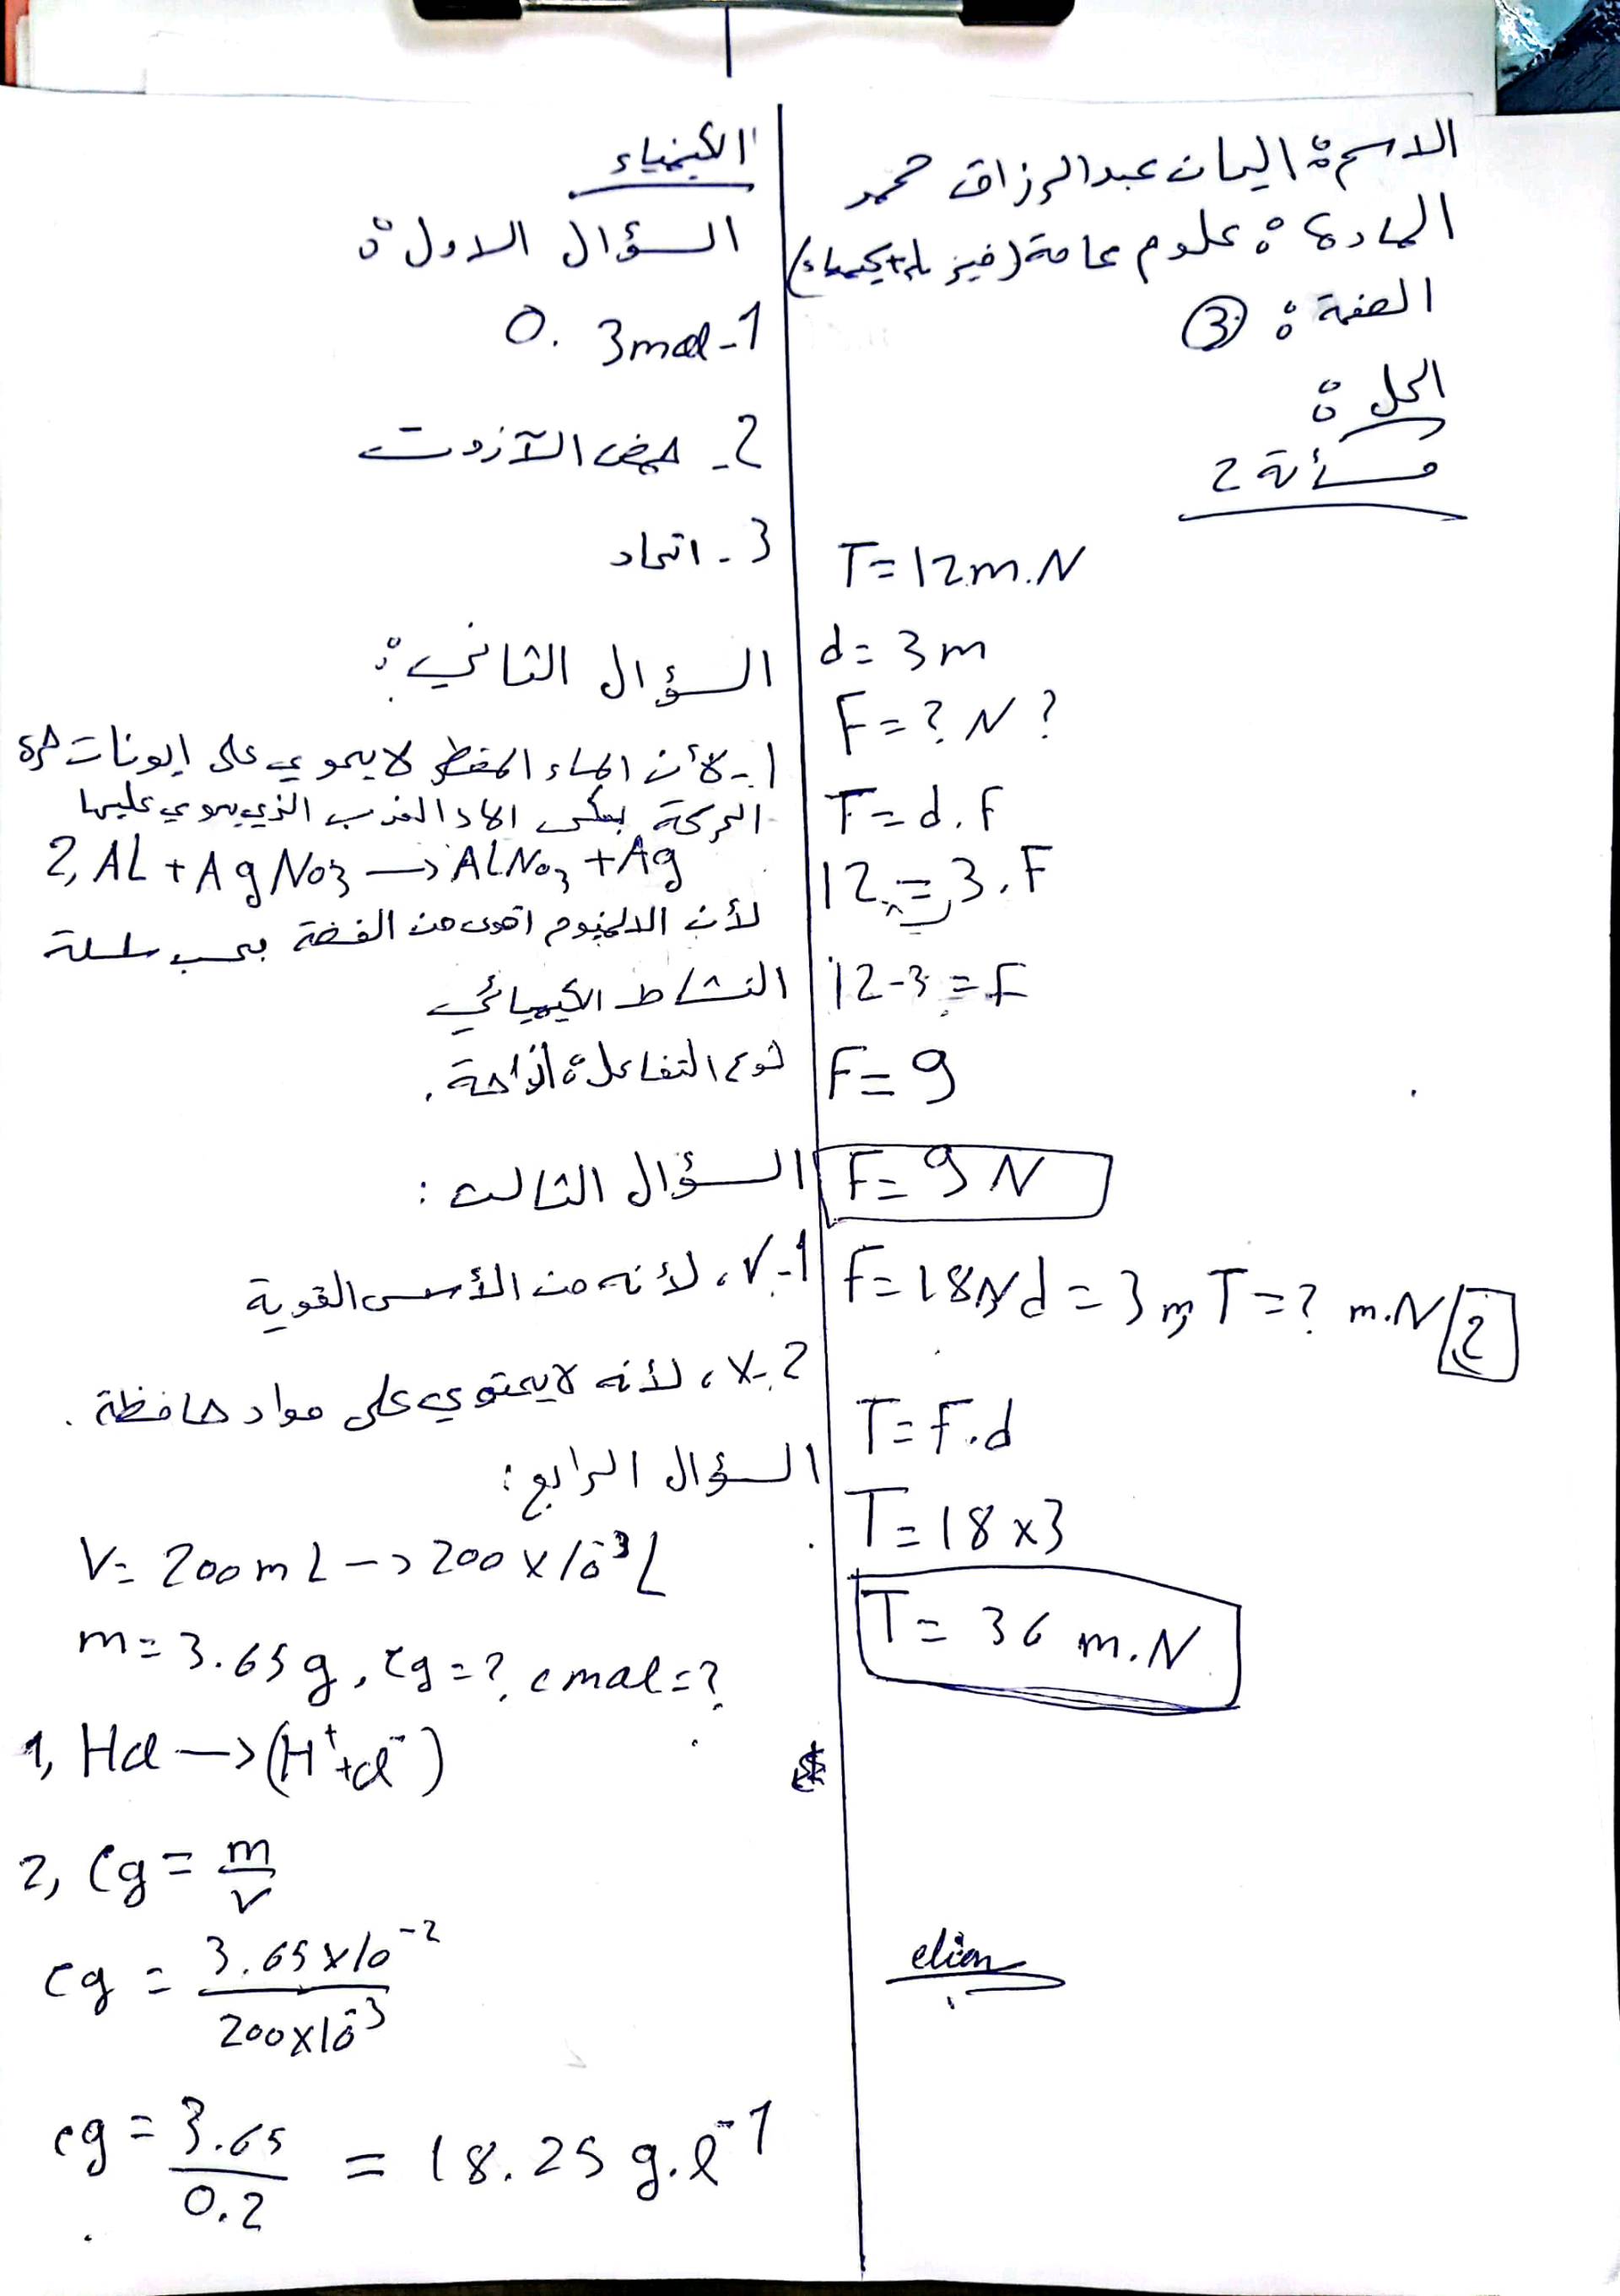 الاسم: اليان عبدالرزاق محمد
المادة: علوم عامة (فيزياء+كيمياء)
الصفحة: 3
الحل:
مسألة 2
T=12m.N
d=3m
F=?N?
T=d.F
12=3.F
12-3=F
F=9
F=9N
F=18N d=3m, T=? m.N 2
T=F.d
T=18x3
T=36 m.N
elian
الكيمياء
السؤال الاول:
0.3mol-1
2- حمض الآزوت
3- اتحاد
السؤال الثاني:
1- لأن الماء المقطر لا يحوي على ايونات حرة
الحركة بعكس الماء العذب الذي يحوي عليها
2, AL + AgNo3 → ALNo3 + Ag
لأن الالمنيوم اقوى من الفضة بحسب سلسلة
النشاط الكيميائي
نوع التفاعل: أزاحة.
السؤال الثالث:
1-√، لأنه من الأسس القوية
2-X، لأنه لا يحتوي على مواد حافظة.
السؤال الرابع:
V= 200mL → 200x10⁻³L
m=3.65g, cg=?, cmol=?
1, Hcl → (H⁺+cl⁻)
2, Cg = m/v
cg = 3.65x10⁻²/200x10⁻³
cg = 3.65/0.2 = 18.25 g.l⁻¹